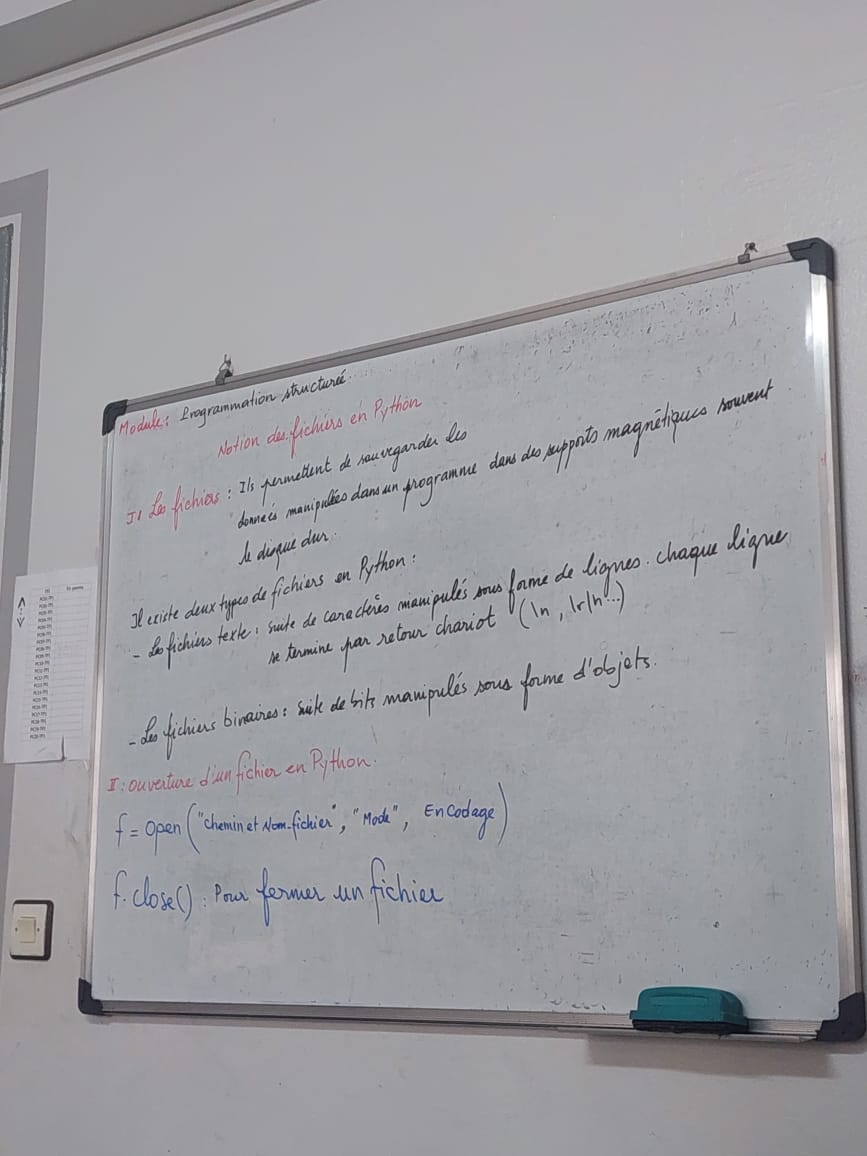 Module: Programmation structurée.
Notion des fichiers en Python
I. Les fichiers : Ils permettent de sauvegarder les
données manipulées dans un programme dans des supports magnétiques souvent
le disque dur.
Il existe deux types de fichiers en Python :
- Les fichiers texte : suite de caractères manipulés sous forme de lignes. chaque ligne
se termine par retour chariot (\n, \r\n...)
- Les fichiers binaires : suite de bits manipulés sous forme d'objets.
II: Ouverture d'un fichier en Python.
f = open ("chemin et Nom-fichier", "Mode", EnCodage)
f.close() : Pour fermer un fichier